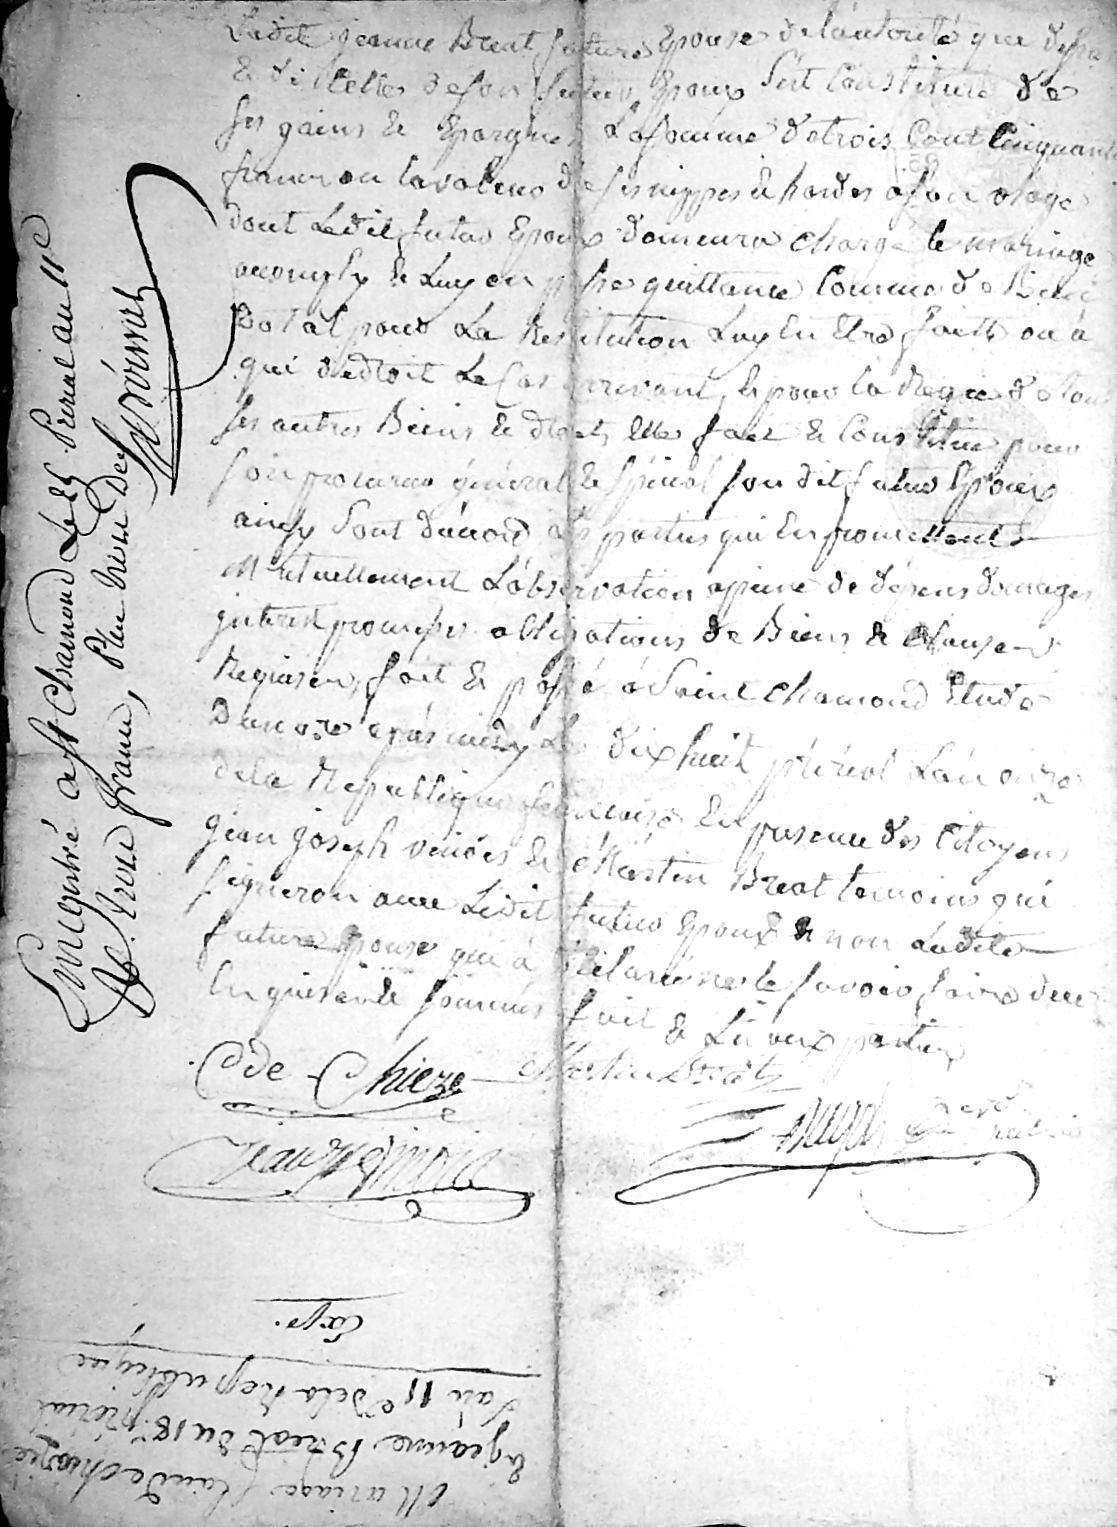 Ladite jeanne Breat future Epouse de lautorité que dessus
& dicelles de son futur Epoux s'est Constitué de
ses gains & Epargnes La somme de trois Cent Cinquante
francs ou la valeur de ses nippes & hardes a son usage
dont Ledit futur Epoux demeura chargé le mariage
accomply & Luy en passe quittance Comme de Bien
Dotal pour La Restitution Luy En Etre faite ou à
qui de droit Le Cas arrivant, & pour la Regie de tous
ses autres Biens & droits Elle fait & Constitue pour
son procureur général & spécial son dit futur Epoux
ainsy sont daccord les parties qui En promettent
Mutuellement L'observation a peine de dépens dommages
interets promesses obligations de Biens & Clauses
Requises, fait & passé à Saint Chamond Etude
du notaire après midy Le dix huit prérial Lan onze
de la Republique francaise En presence des Citoyens
jean joseph & Martin Breat temoins qui
signeron avec Ledit futur Epoux & non Ladite
future Epouse qui à déclaré ne le savoir faire de ce
Enquise & sommée fait & Lu aux parties
Cde Chieze Martin Breat
Jean
Enregistré a St Chamond Le 25 Prérial an 11e
Re. trois francs, Plus trente
Mariage Claude chieze
& jeanne Breat du 18e prérial
l'an 11e de la Republique
Exp.